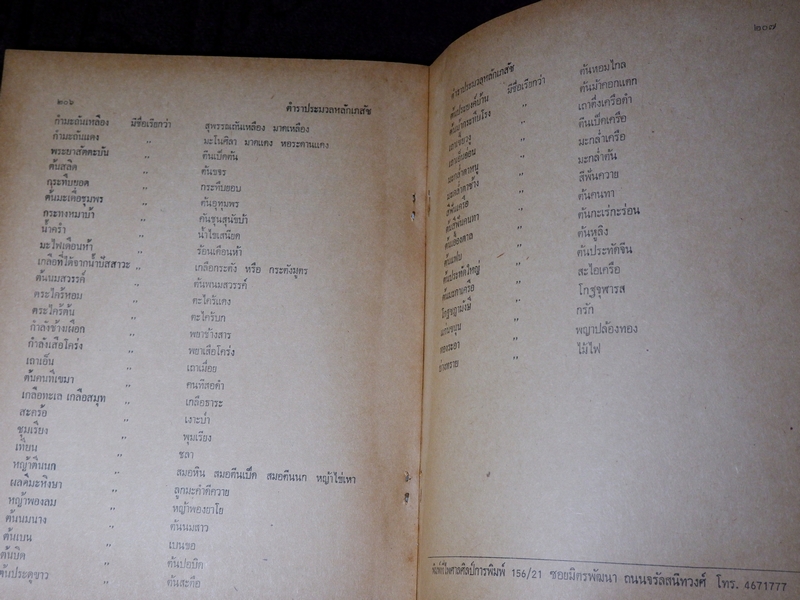 ๒๐๖ ตำราประมวลหลักเภสัช
กำมะถันเหลือง มีชื่อเรียกว่า สุพรรณถันเหลือง มาดเหลือง
กำมะถันแดง " มะโนศิลา มาดแดง หอระดานแดง
พระยาสัตตะบัน " ตีนเป็ดต้น
ต้นสลิด " ต้นขจร
กระทืบยอด " กระทืบยอบ
ต้นมะเดื่อชุมพร " ต้นอุทุมพร
กระทงหมาบ้า " ต้นชุนสุนัขบ้า
น้ำครำ " น้ำไขเสนียด
มะไฟเดือนห้า " ร้อนเดือนห้า
เกลือที่ได้จากน้ำปัสสาวะ " เกลือกระตัง หรือ กระตังมูตร
ต้นนมสวรรค์ " ต้นพนมสวรรค์
ตระไคร้หอม " ตะไคร้แดง
ตระไคร้ต้น " ตะไคร้บก
กำลังช้างเผือก " พยาช้างสาร
กำลังเสือโคร่ง " พยาเสือโคร่ง
เถาเอ็น " เถาเมื่อย
ต้นคนทีเขมา " คนทีสอดำ
เกลือทะเล เกลือสมุท " เกลือธาระ
สะคร้อ " เงาะป่า
ชุมเรียง " พุมเรียง
เทียน " ชลา
หญ้าตีนนก " สมอหิน สมอตีนเป็ด สมอตีนนก หญ้าไข่เหา
ผลดีมะหิงษา " ลูกมะคำดีควาย
หญ้าพองลม " หญ้าพองยาโย
ต้นนมนาง " ต้นนมสาว
ต้นเบน " เบนขอ
ต้นบิด " ต้นปอบิด
ต้นประดุขาว " ต้นสะตือ
๒๐๗
ตำราประมวลหลักเภสัช
มีชื่อเรียกว่า ต้นหอมไกล
" ต้นม้าคอกแตก
" เถาดึ่งเครือคำ
" ตีนเป็ดเครือ
มะกล่ำตาหนู " มะกล่ำเครือ
มะกล่ำตาช้าง " มะกล่ำต้น
" สีฟันควาย
" ต้นคนทา
" ต้นกะเร่กะร่อน
" ต้นหูลิง
ต้นประทัดใหญ่ " ต้นประทัดจีน
" สะไอเครือ
" โกฐจุฬารส
แก่นขนุน " กรัก
" พญาปล้องทอง
" ไม้ไฟ
พิมพ์ที่ไพศาลศิลป์การพิมพ์ 156/21 ซอยมิตรพัฒนา ถนนจรัลสนิทวงศ์ โทร. 4671777